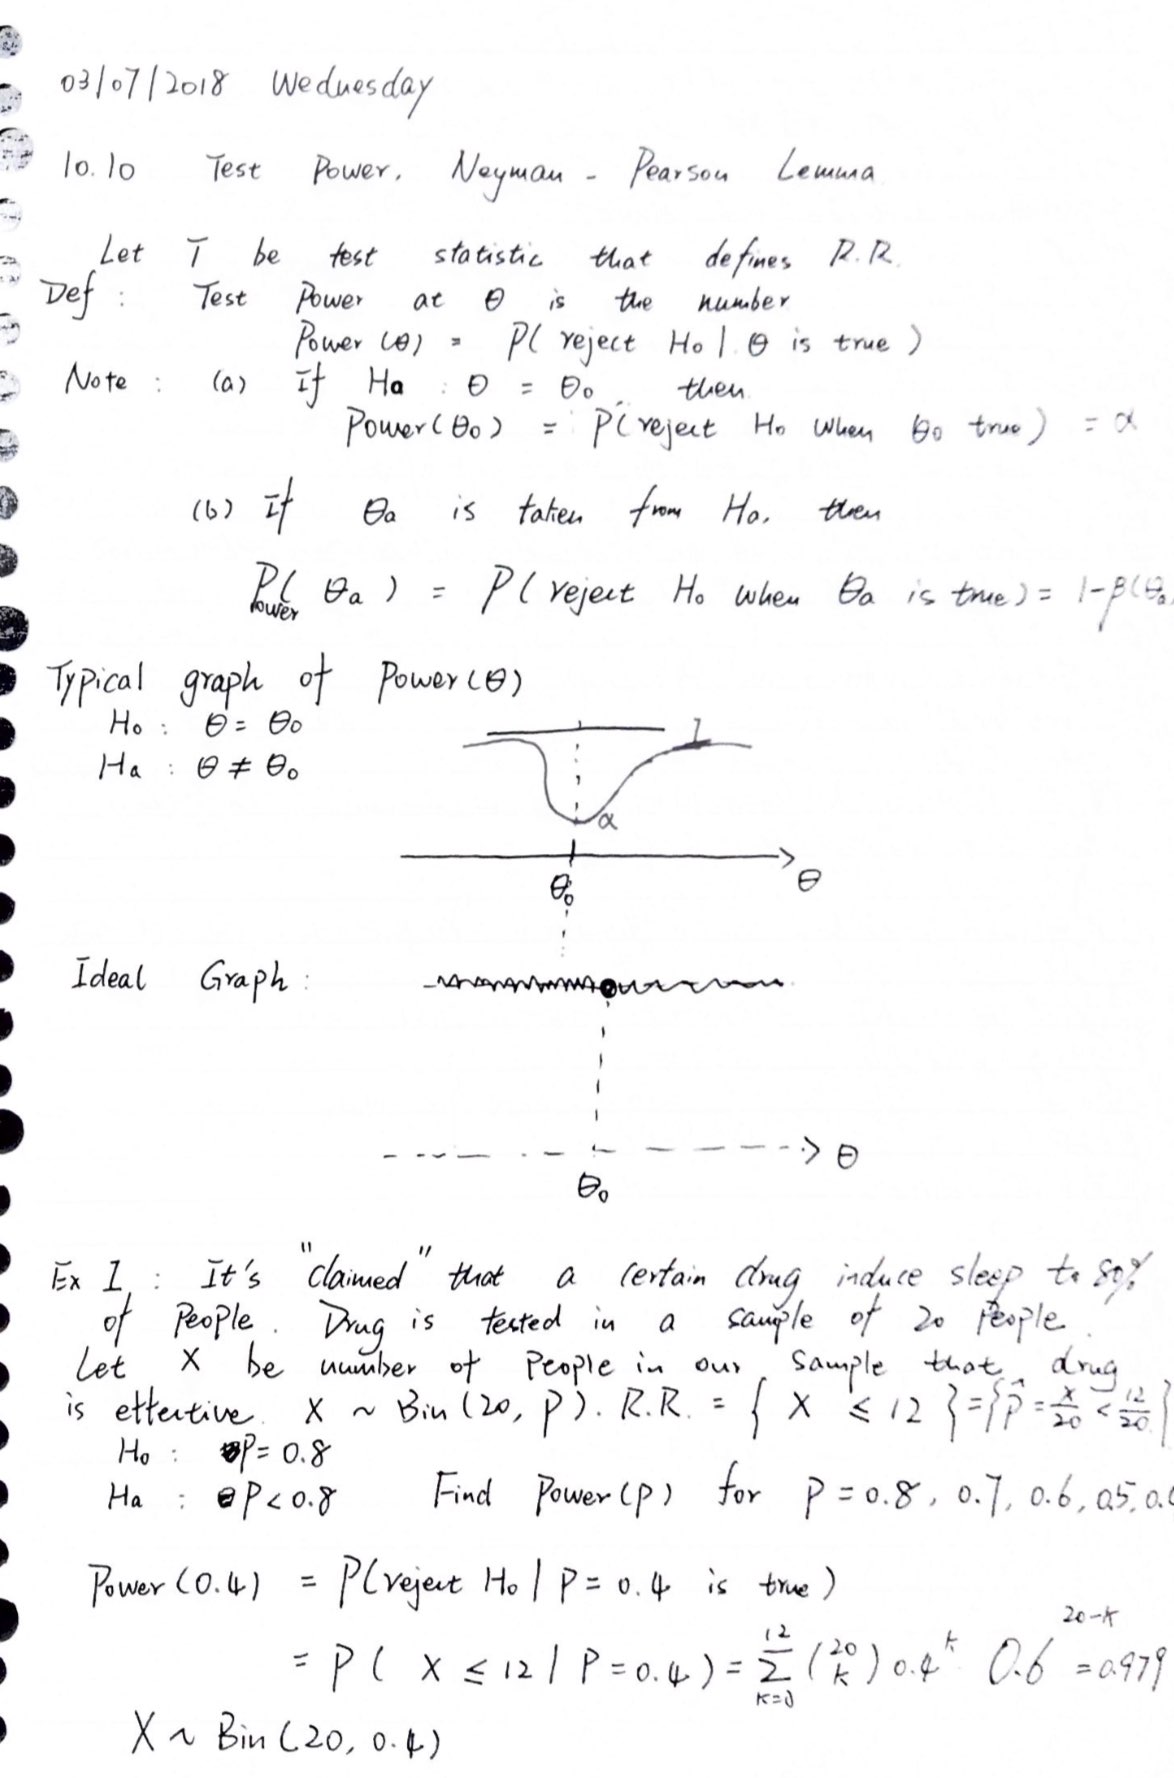 03/07/2018 Wednesday
10.10 Test Power. Neyman - Pearson Lemma
Let T be test statistic that defines R.R.
Def : Test Power at θ is the number
Power (θ) = P( reject Ho | θ is true )
Note : (a) If Ha : θ = θo, then
Power(θo) = P(reject Ho when θo true) = α
(b) If θa is taken from Ha, then
P( θa ) = P( reject Ho when θa is true) = 1-β(θa
Power
Typical graph of Power(θ)
Ho : θ = θo
Ha : θ ≠ θo
1
α
θo
θ
Ideal Graph :
θ
θo
Ex 1 : It's "claimed" that a certain drug induce sleep to 80%
of People. Drug is tested in a sample of 20 People.
Let X be number of People in our sample that drug
is effective. X ~ Bin(20, P). R.R. = { X ≤ 12 } = { p̂ = X/20 ≤ 12/20 }
Ho : P = 0.8
Ha : P < 0.8 Find Power(p) for P = 0.8, 0.7, 0.6, 0.5, 0.
Power (0.4) = P(reject Ho | P = 0.4 is true)
= P( X ≤ 12 | P = 0.4) = Σ_{k=0}^{12} (20 k) 0.4^k 0.6^{20-k} = 0.979
X ~ Bin(20, 0.4)